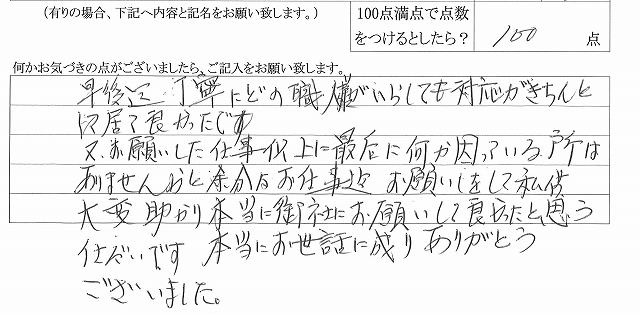 (有りの場合、下記へ内容と記名をお願い致します。)
100点満点で点数
をつけるとしたら?
100 点
何かお気づきの点がございましたら、ご記入をお願い致します。
早後迄 丁寧にどの職種がいらしても対応がきちんと
居て良かったです
又、お願いした仕事以上に最后に何か因っている所は
ありませんかと余分なお仕事迄 お願いをして私供
大変助かり本当に御社にお願いして良かったと思う
仕だいです 本当にお世話に成りありがとう
ございました。